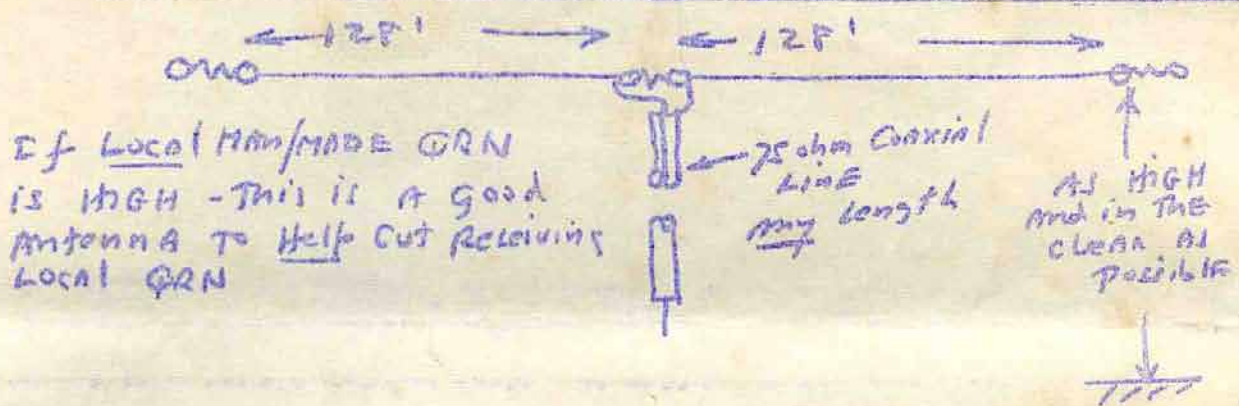 128' 128'
If Local MAN/MADE QRN
is HIGH - This is A Good
Antenna To Help Cut Receiving
Local QRN
75 ohm Coaxial
Line
any Length
As HIGH
and in The
cleAR As
possible